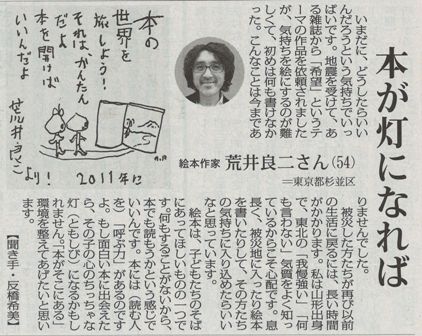 本が灯になれば
絵本作家 荒井良二さん(54)
=東京都杉並区
いまだに、どうしたらいい
んだろうという気持ちでいっ
ぱいです。地震を受けて、あ
る雑誌から「希望」というテ
ーマの作品を依頼されました
が、気持ちを絵にするのが難
しくて、初めは何も書けなか
った。こんなことは今まであ
りませんでした。
被災した方たちが再び以前
の生活に戻るには、長い時間
がかかります。私は山形出身
で、東北の「我慢強い」「何
も言わない」気質をよく知っ
ているからこそ心配です。息
長く、被災地に入ったり絵本
を書いたりして、その方たち
の気持ちに入り込めたらいい
なと思っています。
絵本は、子どもたちのそば
にあってほしいものの一つで
す。何もすることがないから、
本でも読もうかという感じで
いいんです。本には「読む人
を「呼ぶ力」があるのです
よ。もし面白い本に出会えた
ら、その子の心のちっちゃな
灯(ともしび)になるかもし
れません。「本がそこにある」
環境を整えてあげたいと思い
ます。
【聞き手・反橋希美】
本の
世界を
旅しよう!
それは、かんたん
だよ
本を開けば
いいんだよ
荒井良二
より!
2011年に